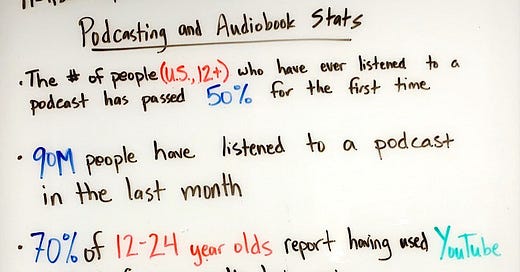 Podcasting and Audiobook Stats
• The # of people (U.S., 12+) who have ever listened to a
podcast has passed 50% for the first time
• 90M people have listened to a podcast
in the last month
• 70% of 12-24 year olds report having used YouTube